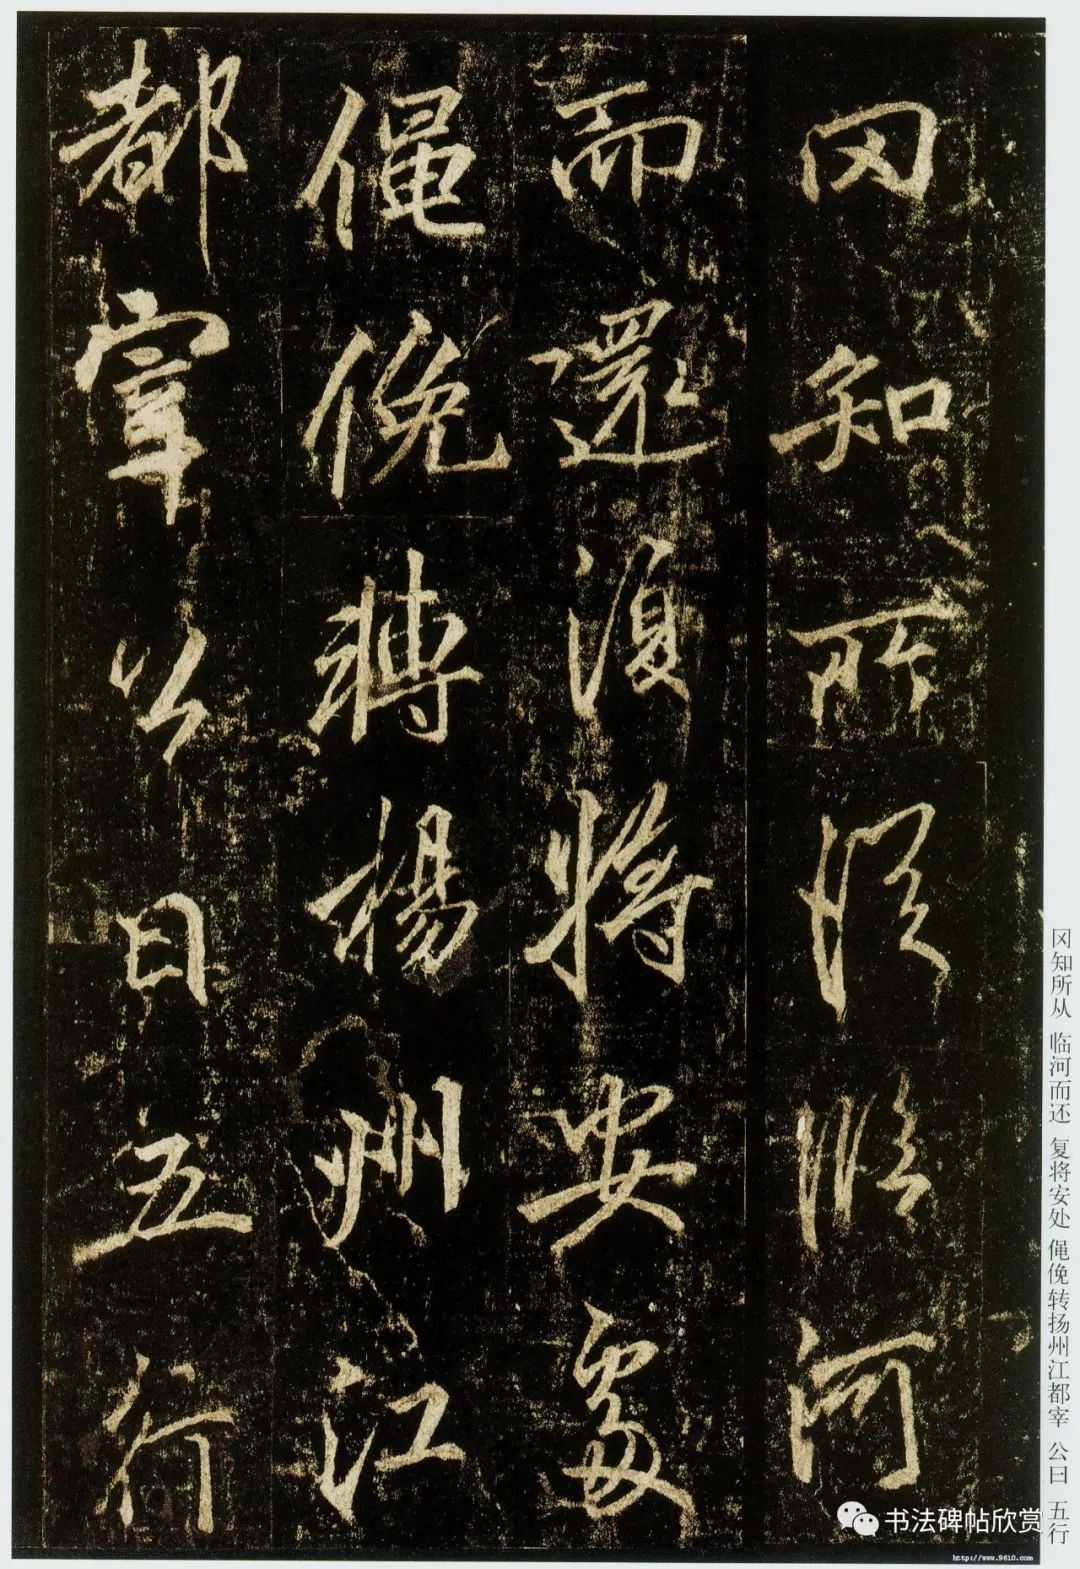 罔知所從臨河
而還復將安處
僶俛轉揚州江
都宰公曰五行
冈知所从 临河而还 复将安处 僶俛转扬州江都宰 公曰 五行
书法碑帖欣赏
http://www.9610.com